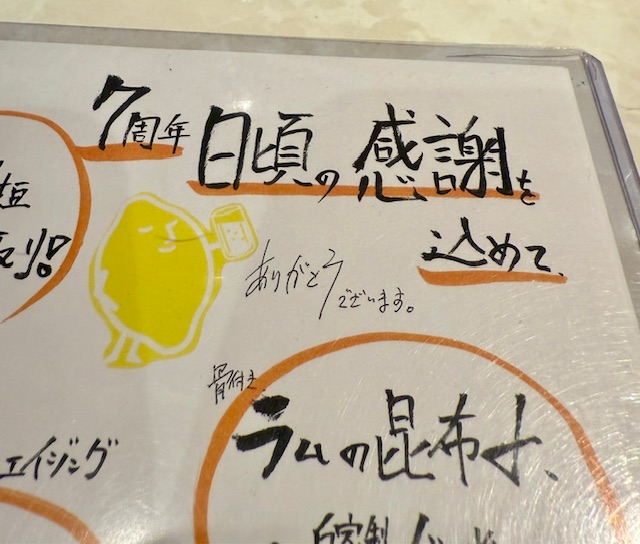 7周年 日頃の感謝を
込めて、
ありがとう
ございます。
骨付き
ラムの昆布〆、
エイジング
自家製